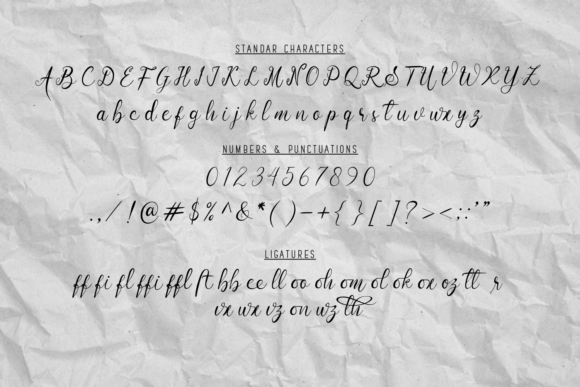 STANDAR CHARACTERS
A B C D E F G H I J K L M N O P Q R S T U V W X Y Z
a b c d e f g h i j k l m n o p q r s t u v w x y z
NUMBERS & PUNCTUATIONS
0 1 2 3 4 5 6 7 8 9 0
. , / ! @ # $ % ^ & * ( ) - + { } [ ] ? > < ; : ' "
LIGATURES
ff fi fl ffi ffl ft bb ce ll oo oh om ol ok ox oz tt r
vx wx vz on wz th